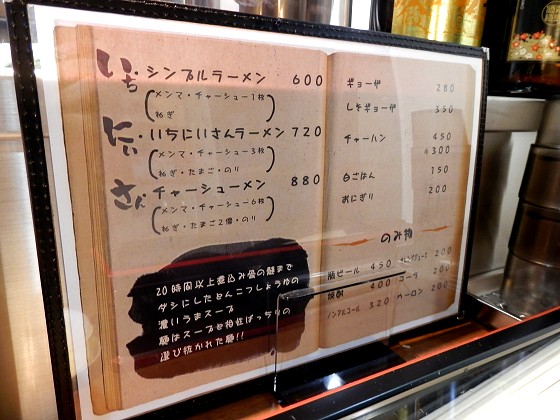 いち シンプルラーメン 600
(メンマ・チャーシュー1枚
ねぎ)
にい・いちにいさんラーメン 720
(メンマ・チャーシュー3枚
ねぎ・たまご・のり)
さん チャーシューメン 880
(メンマ・チャーシュー6枚
ねぎ・たまご2個・のり)
20時間以上煮込み骨の髄まで
ダシにしたとんこつしょうゆの
濃いうまスープ
麺はスープと相性ばっちりの
選び抜かれた麺!!
ギョーザ 280
しそギョーザ 350
チャーハン 450
300
白ごはん 150
おにぎり 200
のみ物
瓶ビール 450 オレンジジュース 200
焼酎 400 コーラ 200
ノンアルコール 320 ウーロン 200